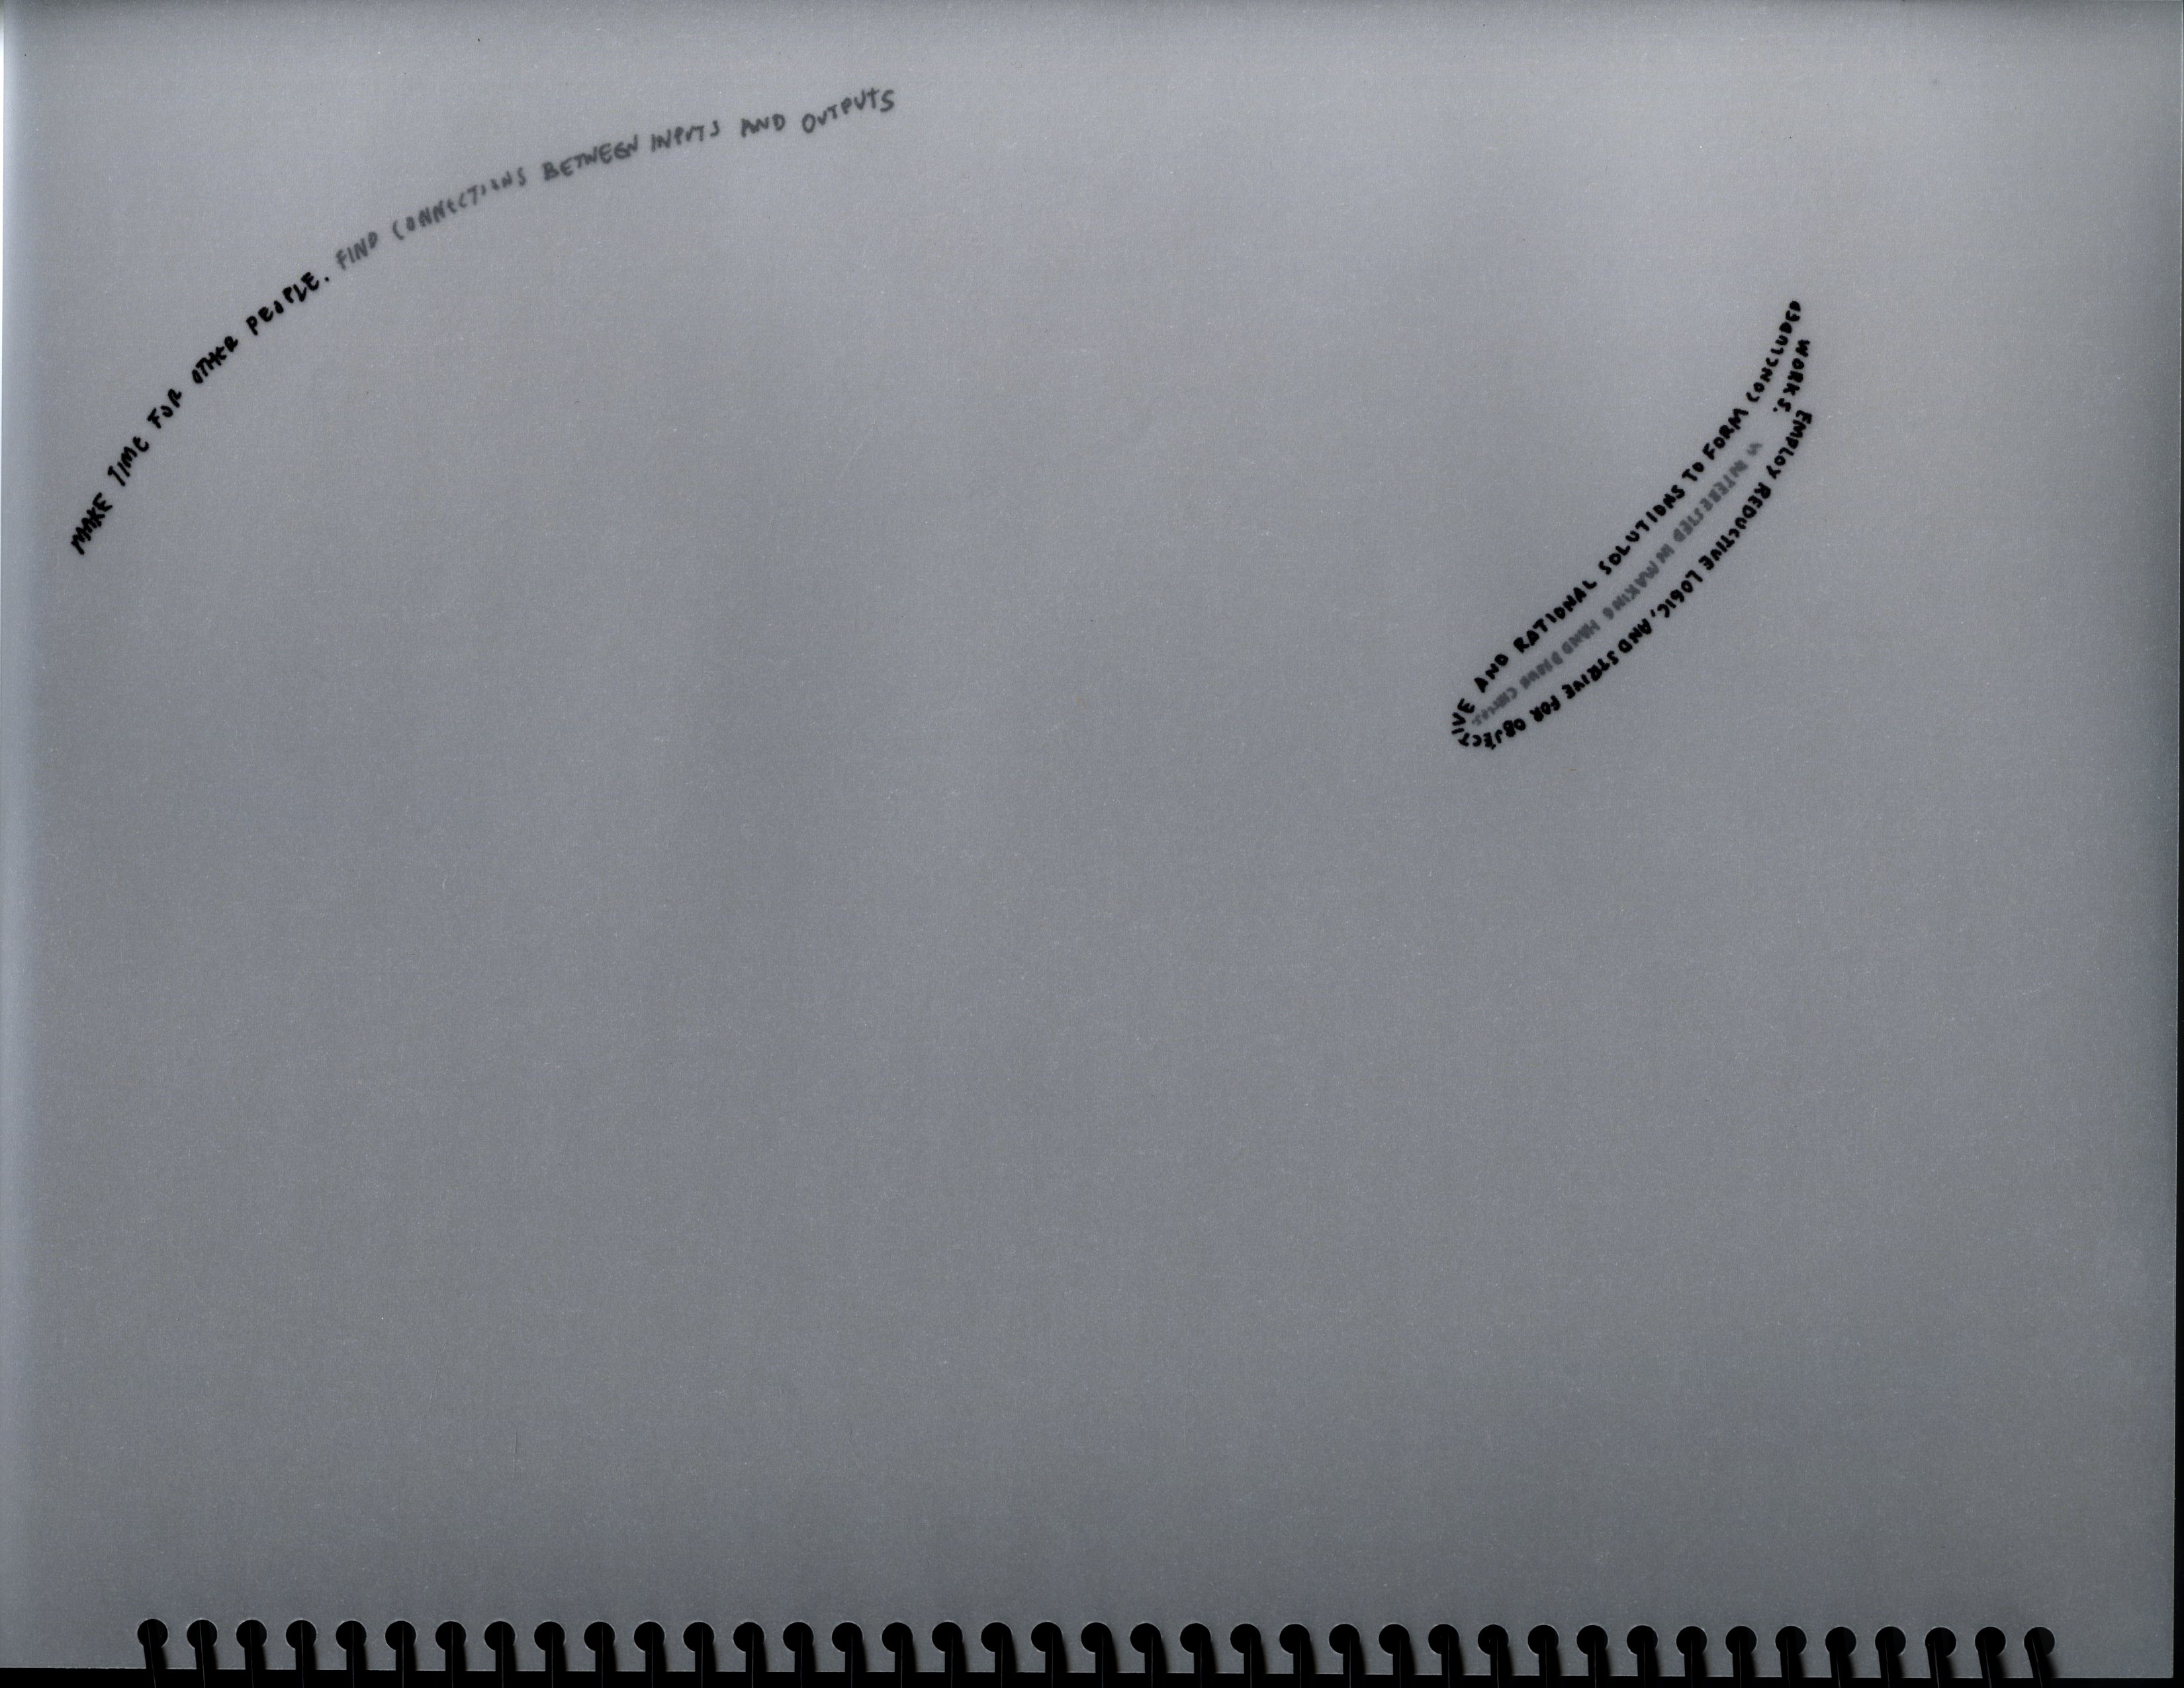 MAKE TIME FOR OTHER PEOPLE. FIND CONNECTIONS BETWEEN INPUTS AND OUTPUTS
EMPLOY REDUCTIVE LOGIC, AND STRIVE FOR OBJECTIVE AND RATIONAL SOLUTIONS TO FORM CONCLUDED WORKS.
INTERESTED IN MAKING HAND